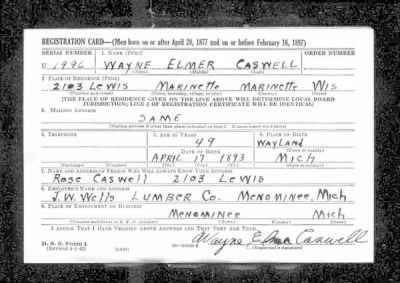 REGISTRATION CARD—(Men born on or after April 28, 1877 and on or before February 16, 1897)
SERIAL NUMBER 1. NAME (Print) ORDER NUMBER
U 1996 WAYNE ELMER CASWELL
(First) (Middle) (Last)
2. PLACE OF RESIDENCE (Print)
2103 LEWIS MARINETTE MARINETTE WIS
(Number and street) (Town, township, village, or city) (County) (State)
[THE PLACE OF RESIDENCE GIVEN ON THE LINE ABOVE WILL DETERMINE LOCAL BOARD
JURISDICTION; LINE 2 OF REGISTRATION CERTIFICATE WILL BE IDENTICAL]
3. MAILING ADDRESS
SAME
(Mailing address if other than place indicated on line 2. If same insert word same)
4. TELEPHONE 5. AGE IN YEARS 6. PLACE OF BIRTH
49 WAYLAND
DATE OF BIRTH (Town or county)
APRIL 17 1893 MICH
(Exchange) (Number) (Mo.) (Day) (Yr.) (State or country)
7. NAME AND ADDRESS OF PERSON WHO WILL ALWAYS KNOW YOUR ADDRESS
ROSE CASWELL 2103 LEWIS
8. EMPLOYER'S NAME AND ADDRESS
J.W. Wells LUMBER CO. MENOMINEE, MICH
9. PLACE OF EMPLOYMENT OR BUSINESS
MENOMINEE MICH
(Number and street or R. F. D. number) (Town) (County) (State)
I AFFIRM THAT I HAVE VERIFIED ABOVE ANSWERS AND THAT THEY ARE TRUE.
D. S. S. Form 1
(Revised 4-1-42) (over) Wayne Elmer Caswell
(Registrant's signature)